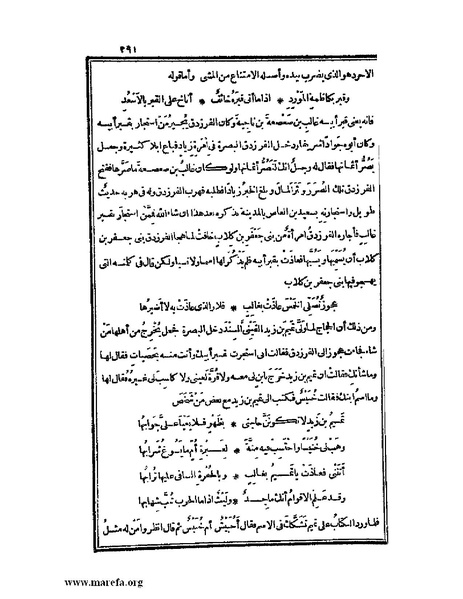 ٢٩١
الاحرد هو الذي يضرب بيده وأصله الامتناع من المشي وأما قوله
وقبر بكاظمة المورد * اذا ما أتى قبره خائف * أناخ على القبر بالأسعد
فانه يعني قبر أبيه غالب بن صعصعة بن ناجية وكان الفرزدق يجير من استجار بقبر أبيه
وكان أبوه جوادا شريفا ودخل الفرزدق البصرة في زياد فباع ابلا كثيرة وجعل
يصر أثمانها فقال له رجل انك لتصر أثمانها ولو كان غالب بن صعصعة ما صرها ففتح
الفرزدق تلك الصرر ونثر المال وبلغ الخبر زيادا فطلبه فهرب الفرزدق وله في هربه حديث
طويل واستجارته بسعيد بن العاص بالمدينة نذكره بعد هذا ان شاء الله فمن استجار بقبر
غالب فأجاره الفرزدق امرأة من بني جعفر بن كلاب خافت لما هجا الفرزدق بني جعفر بن
كلاب أن يسميها ويسبها فعاذت بقبر أبيه فلم يذكر لها اسما ولا نسبا ولكن قال في كلمته التي
يهجو فيها بني جعفر بن كلاب
عجوز تصلي الخمس عاذت بغالب * فلا والذي عاذت به لا أضيرها
ومن ذلك أن الحجاج لما ولى تميم بن زيد القيني السند دخل البصرة فجعل يخرج من أهلها من
شاء فجاءت عجوز الى الفرزدق فقالت اني استجرت بقبر أبيك وأتت منه بحصيات فقال لها
وما شأنك فقالت ان تميم بن زيد خرج بابن لي معه ولا قرة لعيني ولا كاسب لي غيره فقال لها
وما اسم ابنك فقالت خنيس فكتب الى تميم بن زيد مع بعض من شخص
تميم بن زيد لا تكونن حاجتي * بظهر فلا يعيا علي جوابها
وهب لي خنيسا واحتسب فيه منة * لعبرة أم ما يسوغ شرابها
أتتني فعاذت يا تميم بغالب * وبالحفرة السافي عليها ترابها
وقد علم الاقوام أنك ماجد * وليث اذا ما الحرب شب شهابها
فلما ورد الكتاب على تميم تشكك في الاسم فقال أحبيش أم خنيس ثم قال انظروا من له مثل
www.marefa.org